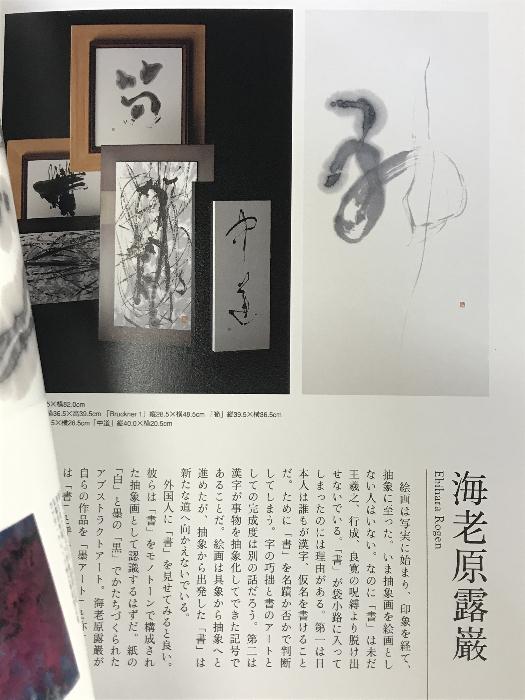 5×横82.0cm
「Bruckner 1」縦28.5×横48.5cm
縦39.5×横36.5cm
.5×横28.5cm「中道」縦40.0×横20.5cm
海老原露巌
Ebihara Rogen
絵画は写実に始まり、印象を経て、
抽象に至った。いま抽象画を絵画とし
ない人はいない。なのに「書」は未だ
王羲之、行成、良寛の呪縛より脱け出
せないでいる。「書」が袋小路に入って
しまったのには理由がある。第一は日
本人は誰もが漢字、仮名を書けること
だ。ために「書」を名蹟か否かで判断
してしまう。字の巧拙と書のアートと
しての完成度は別の話だろう。第二は
漢字が事物を抽象化してできた記号で
あることだ。絵画は具象から抽象へと
進めたが、抽象から出発した「書」は
新たな道へ向かえないでいる。
外国人に「書」を見せてみると良い。
彼らは「書」をモノトーンで構成され
た抽象画として認識するはずだ。紙の
「白」と墨の「黒」でかたちづくられた
アブストラクトアート。海老原露巌が
自らの作品を「墨アート」と
は「書」と